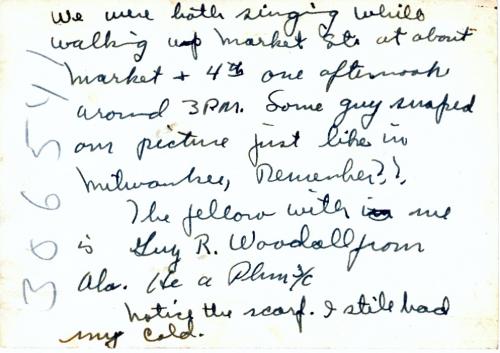 We were both singing while
walking up Market St. at about
Market + 4th one afternoon
around 3 P.M. Some guy snaped
our picture just like in
Milwaukee, Remember??
The fellow with me
is Guy R. Woodall from
Ala. He a Phm 3/c
Notice the scarf. I still had
my cold.
306541